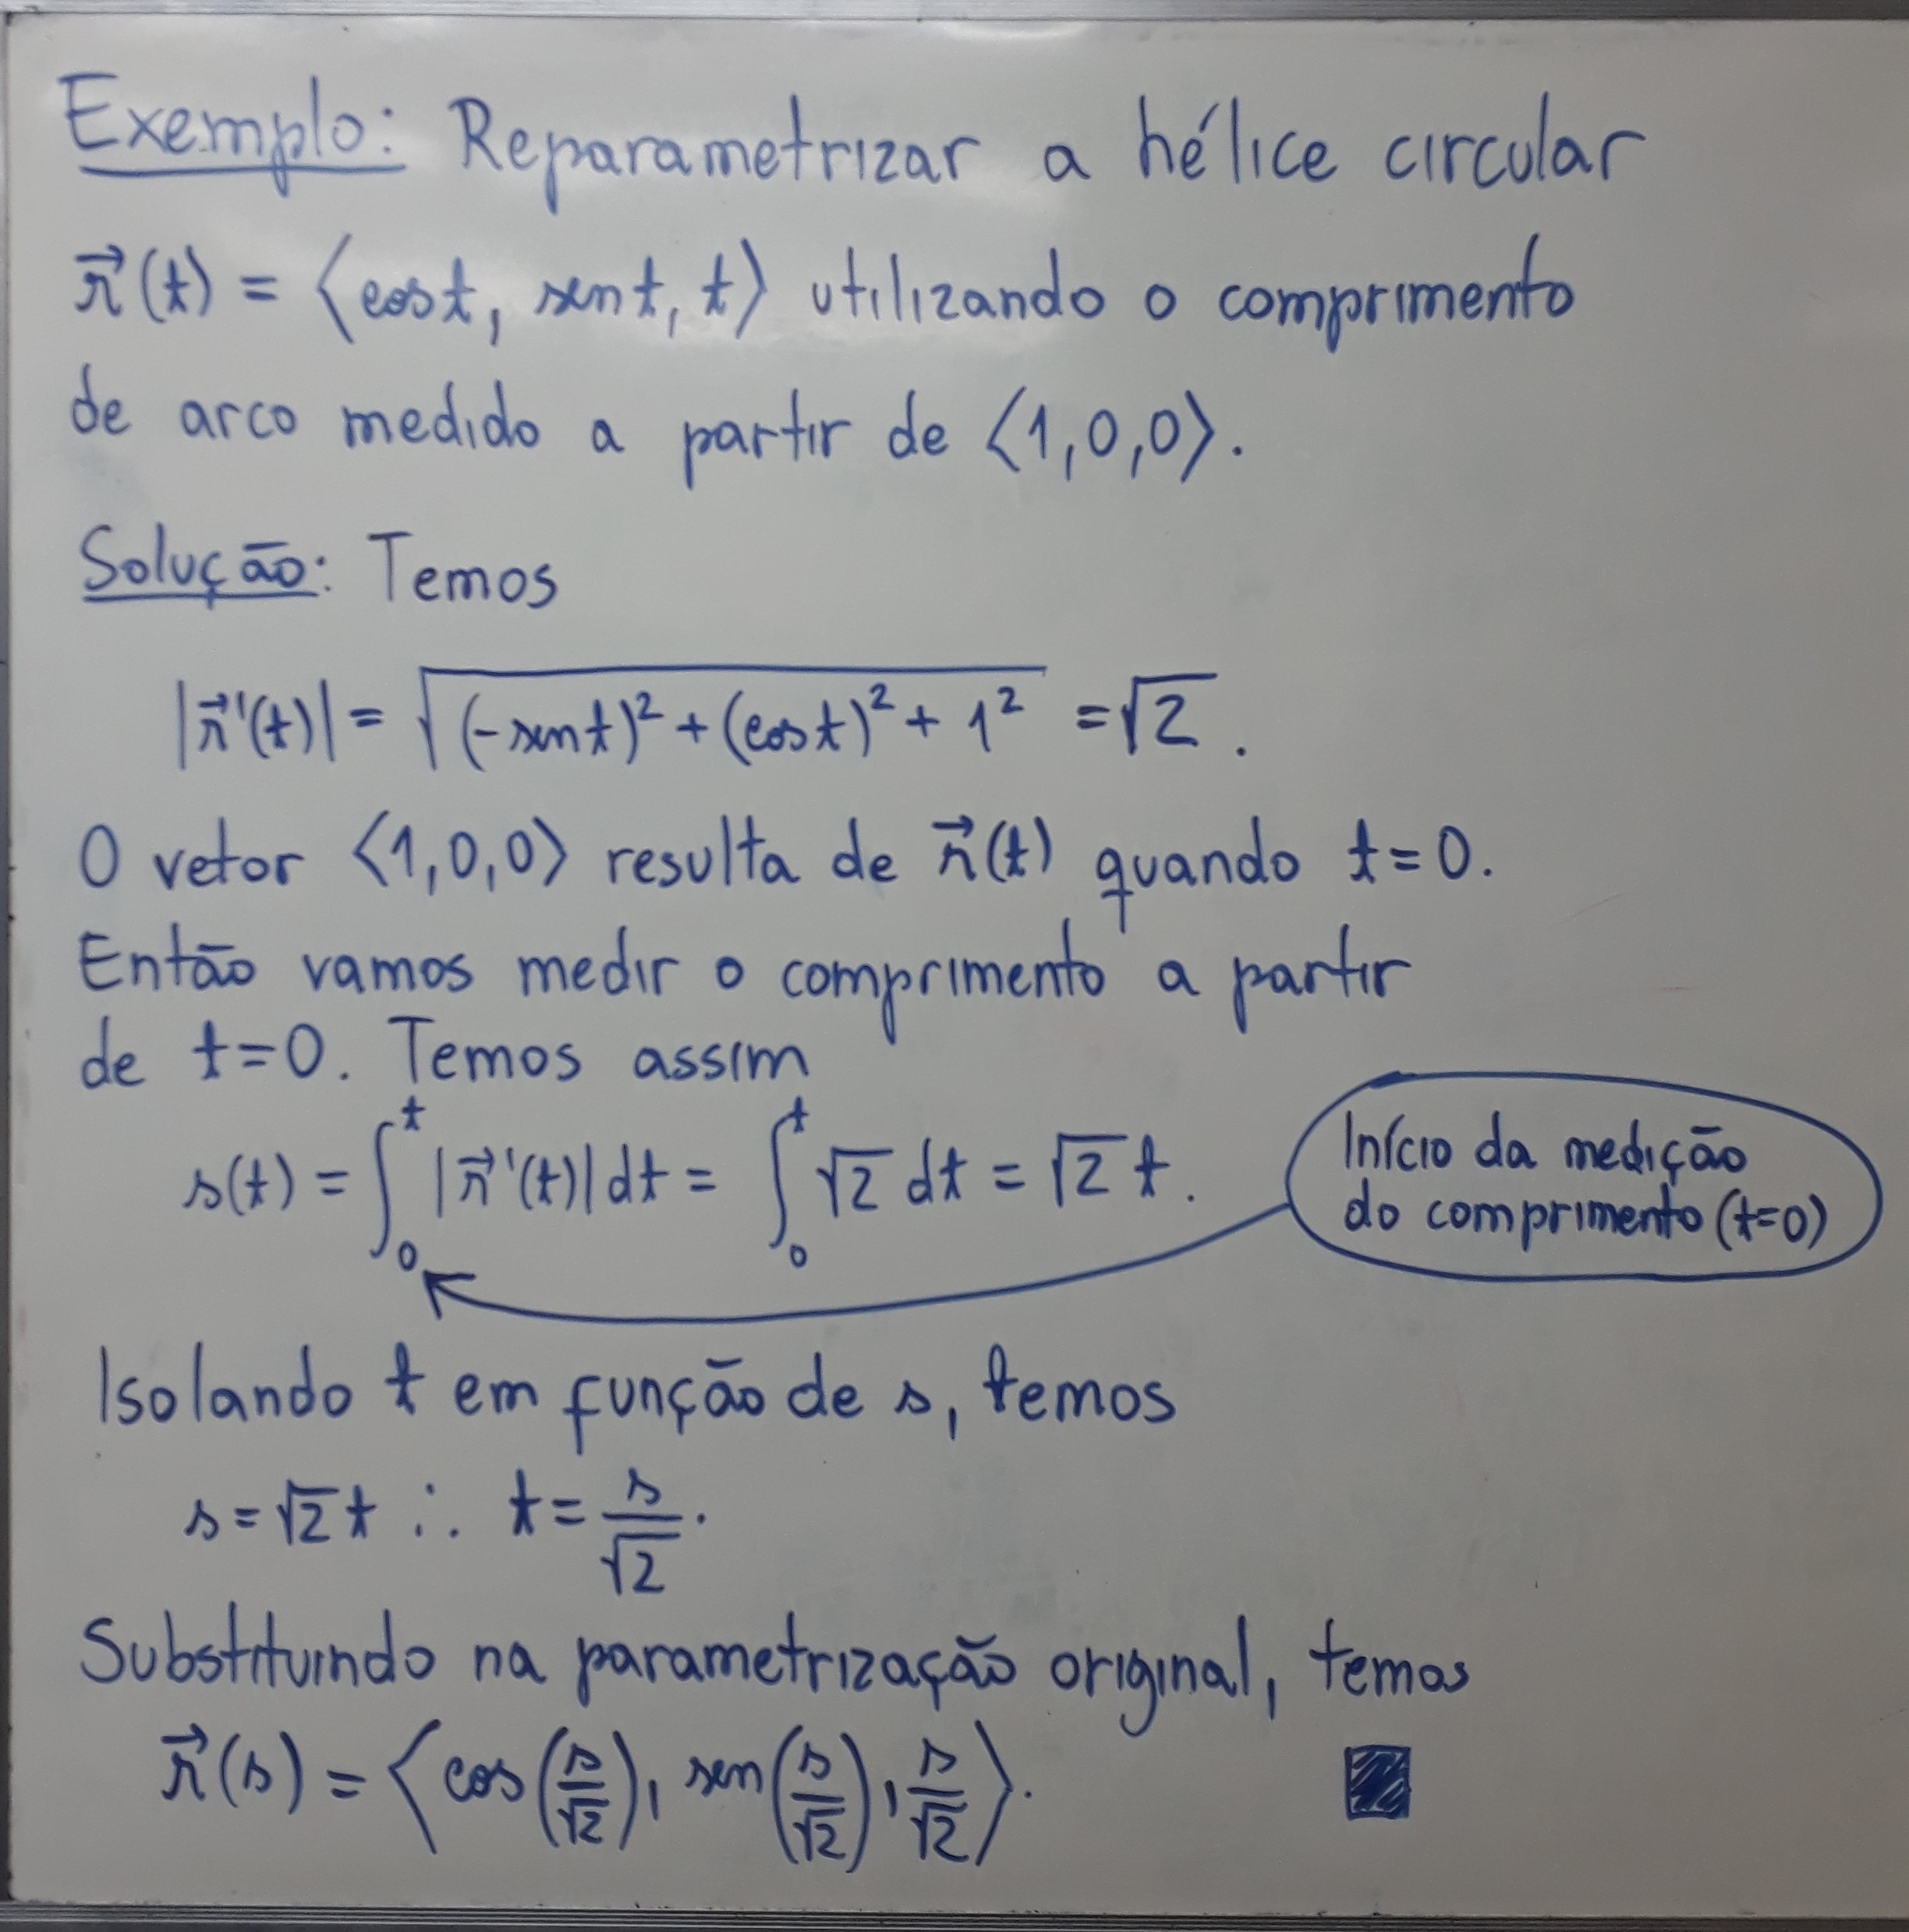 Exemplo: Reparametrizar a hélice circular
r⃗(t) = ⟨cos t, sen t, t⟩ utilizando o comprimento
de arco medido a partir de ⟨1,0,0⟩.
Solução: Temos
|r⃗'(t)| = √((-sen t)² + (cos t)² + 1²) = √2.
O vetor ⟨1,0,0⟩ resulta de r⃗(t) quando t=0.
Então vamos medir o comprimento a partir
de t=0. Temos assim
s(t) = ∫₀ᵗ |r⃗'(t)| dt = ∫₀ᵗ √2 dt = √2 t.
Início da medição
do comprimento (t=0)
Isolando t em função de s, temos
s = √2 t ∴ t = s/√2.
Substituindo na parametrização original, temos
r⃗(s) = ⟨cos(s/√2), sen(s/√2), s/√2⟩.